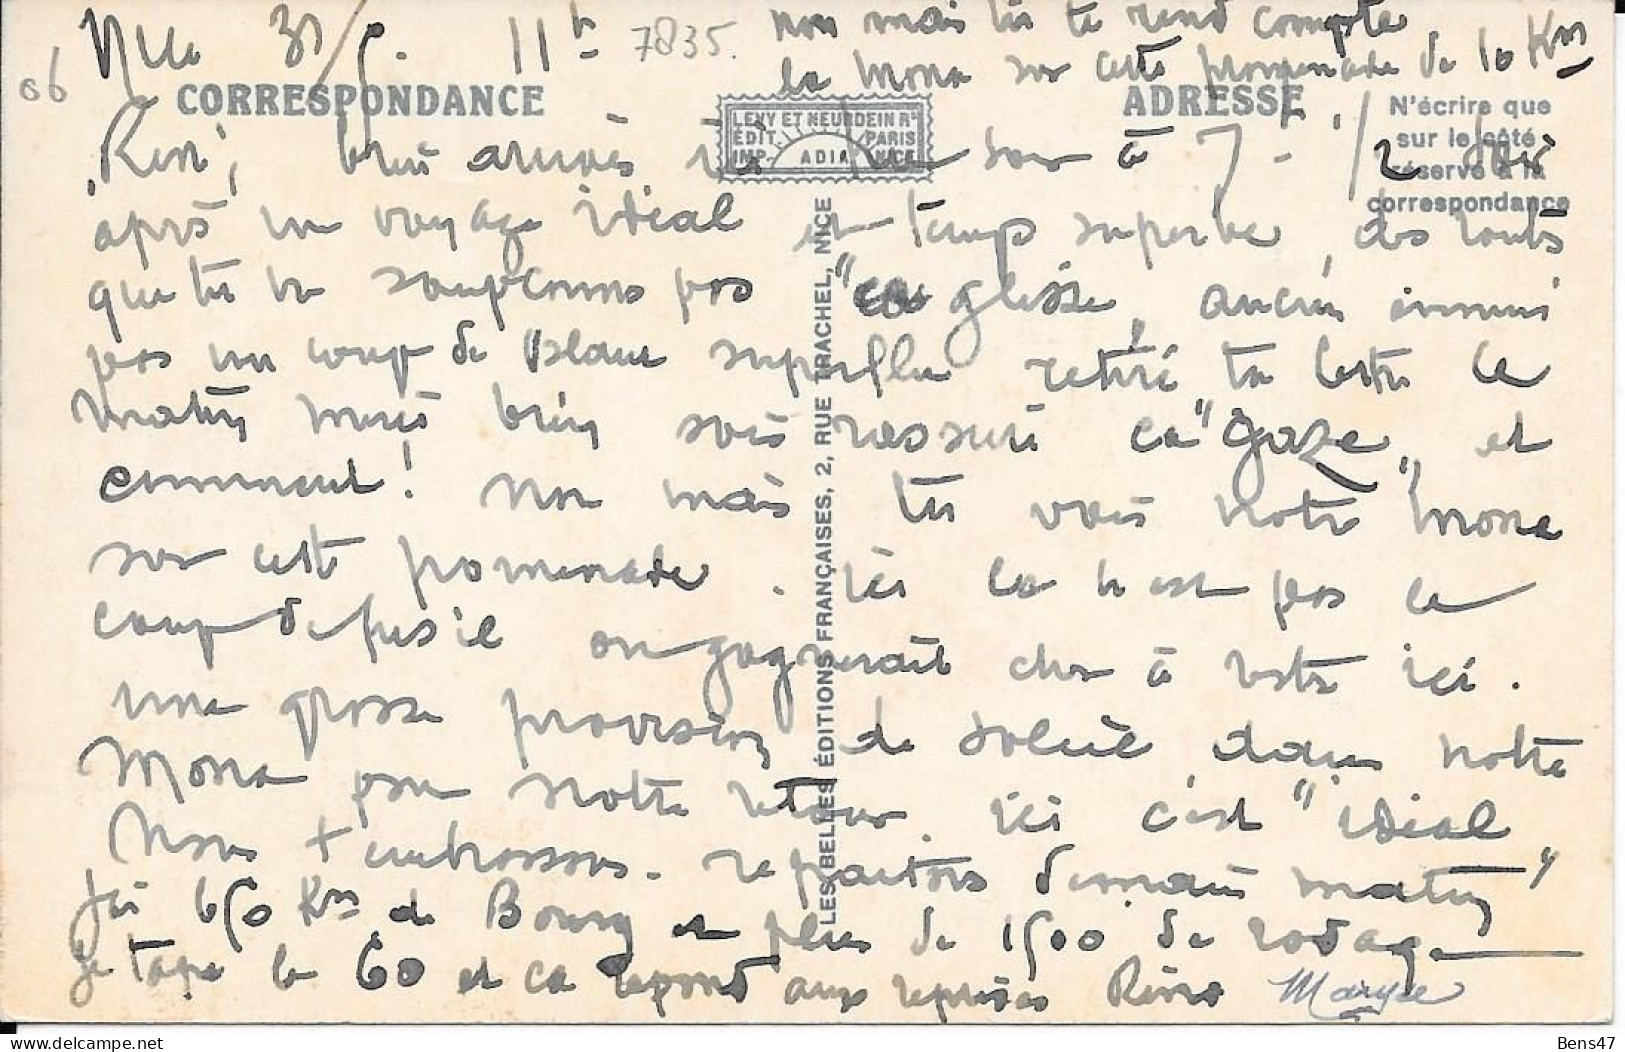 06 Nice 31/5. 11h 7835. non mais tu te rend compte
la Mona sur cette promenade de 10 Km
CORRESPONDANCE
ADRESSE
N'écrire que
sur le côté
réservé à la
correspondance
LEVY ET NEURDEIN Rs
ÉDIT. PARIS
IMP. ADIA NICE
LES BELLES ÉDITIONS FRANÇAISES, 2, RUE TRACHEL, NICE
bien arrivés ici hier soir à 7 - 1/2
après un voyage idéal et temps superbe, des routes
que tu ne soupçonnes pas "ça glisse, aucun ennui
pas un coup de superflu retiré ta lettre ce
matin merci bien sois rassuré ça "gaze" et
comment! non mais tu vois notre "Mona
sur cette promenade. ici ça n'est pas le
coup de fusil on gagnerait cher à rester ici.
une grosse provision de soleil dans notre
Mona pour notre retour. ici c'est "idéal"
Nous t'embrassons. repartons demain matin
J'ai 650 Kms de Bourg et plus de 1500 de rodage
je tape le 60 et ça répond aux reprises Maryse
Bens47